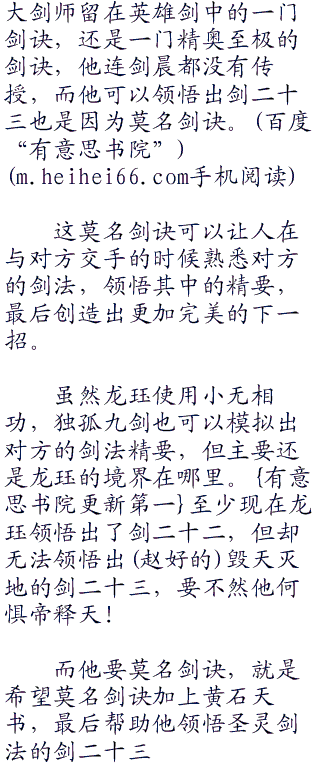 大剑师留在英雄剑中的一门
剑诀，还是一门精奥至极的
剑诀，他连剑晨都没有传
授，而他可以领悟出剑二十
三也是因为莫名剑诀。(百度
“有意思书院”)
(m.heihei66.com手机阅读)
这莫名剑诀可以让人在
与对方交手的时候熟悉对方
的剑法，领悟其中的精要，
最后创造出更加完美的下一
招。
虽然龙珏使用小无相
功，独孤九剑也可以模拟出
对方的剑法精要，但主要还
是龙珏的境界在哪里。{有意
思书院更新第一}至少现在龙
珏领悟出了剑二十二，但却
无法领悟出(赵好的)毁天灭
地的剑二十三，要不然他何
惧帝释天！
而他要莫名剑诀，就是
希望莫名剑诀加上黄石天
书，最后帮助他领悟圣灵剑
法的剑二十三